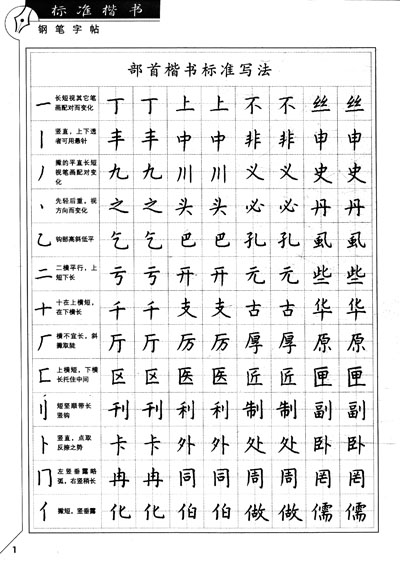 标准楷书
钢笔字帖
部首楷书标准写法
一 长短视其它笔画配对而变化 丁 丁 上 上 不 不 丝 丝
丨 竖直，上下透者可用悬针 丰 丰 中 中 非 非 申 申
丿 撇的平直长短视笔画配对变化 九 九 川 川 义 义 史 史
丶 先轻后重，视方向而变化 之 之 头 头 必 必 丹 丹
乙 钩部高斜低平 乞 乞 巴 巴 孔 孔 虱 虱
二 二横平行，上短下长 亏 亏 开 开 元 元 些 些
十 十在上横短，在下横长 千 千 支 支 古 古 华 华
厂 横不宜长，斜撇取陡 厅 厅 厉 厉 厚 厚 原 原
匚 上横短，下横长托住中间 区 区 医 医 匠 匠 匣 匣
刂 短竖顺带长竖钩 刊 刊 利 利 制 制 副 副
卜 竖直，点取反捺之势 卡 卡 外 外 处 处 卧 卧
冂 左竖垂露略弧，右竖稍长 冉 冉 同 同 周 周 罔 罔
亻 撇短，竖垂露 化 化 伯 伯 做 做 儒 儒
1